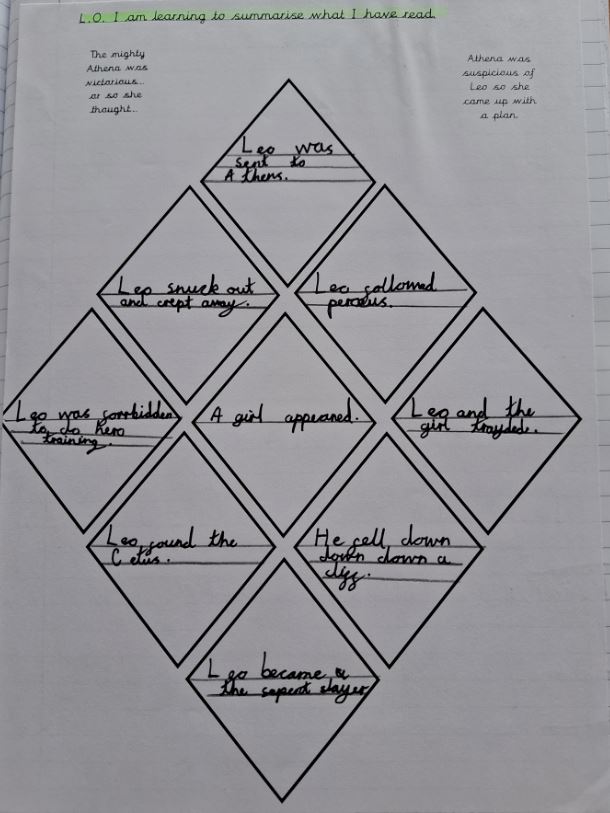 L.O. I am learning to summarise what I have read.
The mighty
Athena was
victorious...
or so she
thought...
Athena was
suspicious of
Leo so she
came up with
a plan.
Leo was
sent to
Athens.
Leo snuck out
and crept away.
Leo follomed
perceus.
Leo was forrbidden
to do hero
training.
A girl appeared.
Leo and the
girl trayded.
Leo found the
Cetus.
He fell down
down down a
cliff.
Leo became
the sepent slayer